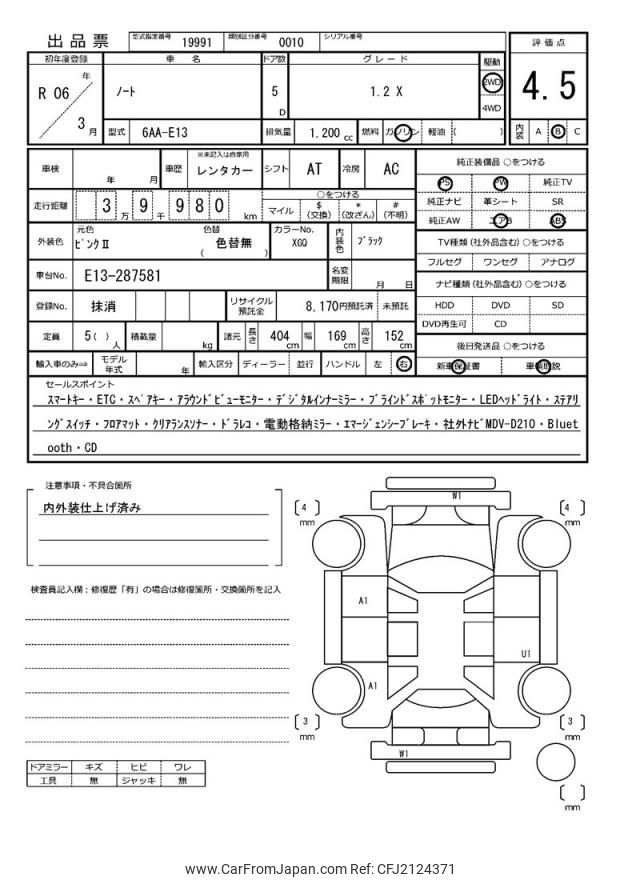 出品票 型式指定番号 19991 類別区分番号 0010 シリアル番号
評価点
4.5
初年度登録 車名 ドア数 グレード 駆動
R 06 年 3 月 ノート 5 D 1.2 X 2WD 4WD
型式 6AA-E13 排気量 1.200 cc 燃料 ガソリン 軽油 ( ) 内装 A B C
車検 年 月 車歴 ※未記入は自家用 レンタカー シフト AT 冷房 AC
走行距離 3 万 9 千 9 8 0 km ○をつける
マイル $ (交換) * (改ざん) # (不明)
外装色 元色 ピンクⅡ 色替 ( 色替無 ) カラーNo. XGQ 内装色 ブラック
車台No. E13-287581 名変期限 月 日
登録No. 抹消 リサイクル預託金 8,170円預託済 未預託
定員 5( ) 人 積載量 kg 諸元 長さ 404 cm 幅 169 cm 高さ 152 cm
輸入車のみ⇒ モデル年式 年 輸入区分 ディーラー 並行 ハンドル 左 右
純正装備品 ○をつける
PS PW 純正TV
純正ナビ 革シート SR
純正AW エアB ABS
TV種類 (社外品含む) ○をつける
フルセグ ワンセグ アナログ
ナビ種類 (社外品含む) ○をつける
HDD DVD SD
DVD再生可 CD
後日発送品 ○をつける
新車保証書 車輌取説
セールスポイント
スマートキー・ETC・スペアキー・アラウンドビューモニター・デジタルインナーミラー・ブラインドスポットモニター・LEDヘッドライト・ステアリ
ングスイッチ・フロアマット・クリアランスソナー・ドラレコ・電動格納ミラー・エマージェンシーブレーキ・社外ナビMDV-D210・Bluet
ooth・CD
注意事項・不具合箇所
内外装仕上げ済み
検査員記入欄：修復歴「有」の場合は修復箇所・交換箇所を記入
ドアミラー キズ ヒビ ワレ
工具 無 ジャッキ 無
W1
4 mm
4 mm
A1
U1
A1
3 mm
3 mm
W1
mm
www.CarFromJapan.com Ref: CFJ2124371